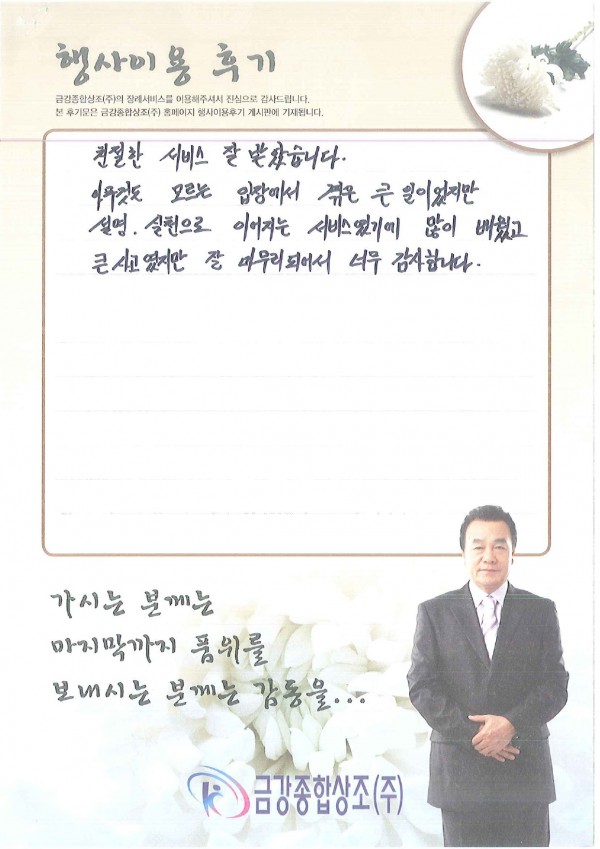 행사이용 후기
금강종합상조(주)의 장례서비스를 이용해주셔서 진심으로 감사드립니다.
본 후기문은 금강종합상조(주) 홈페이지 행사이용후기 게시판에 기재됩니다.
친절한 서비스 잘 받았습니다.
아무것도 모르는 입장에서 겪은 큰 일이었지만
설명, 실천으로 이어지는 서비스였기에 많이 배웠고
큰 사고였지만 잘 마무리되어서 너무 감사합니다.
가시는 분께는
마지막까지 품위를
보내시는 분께는 감동을...
금강종합상조(주)